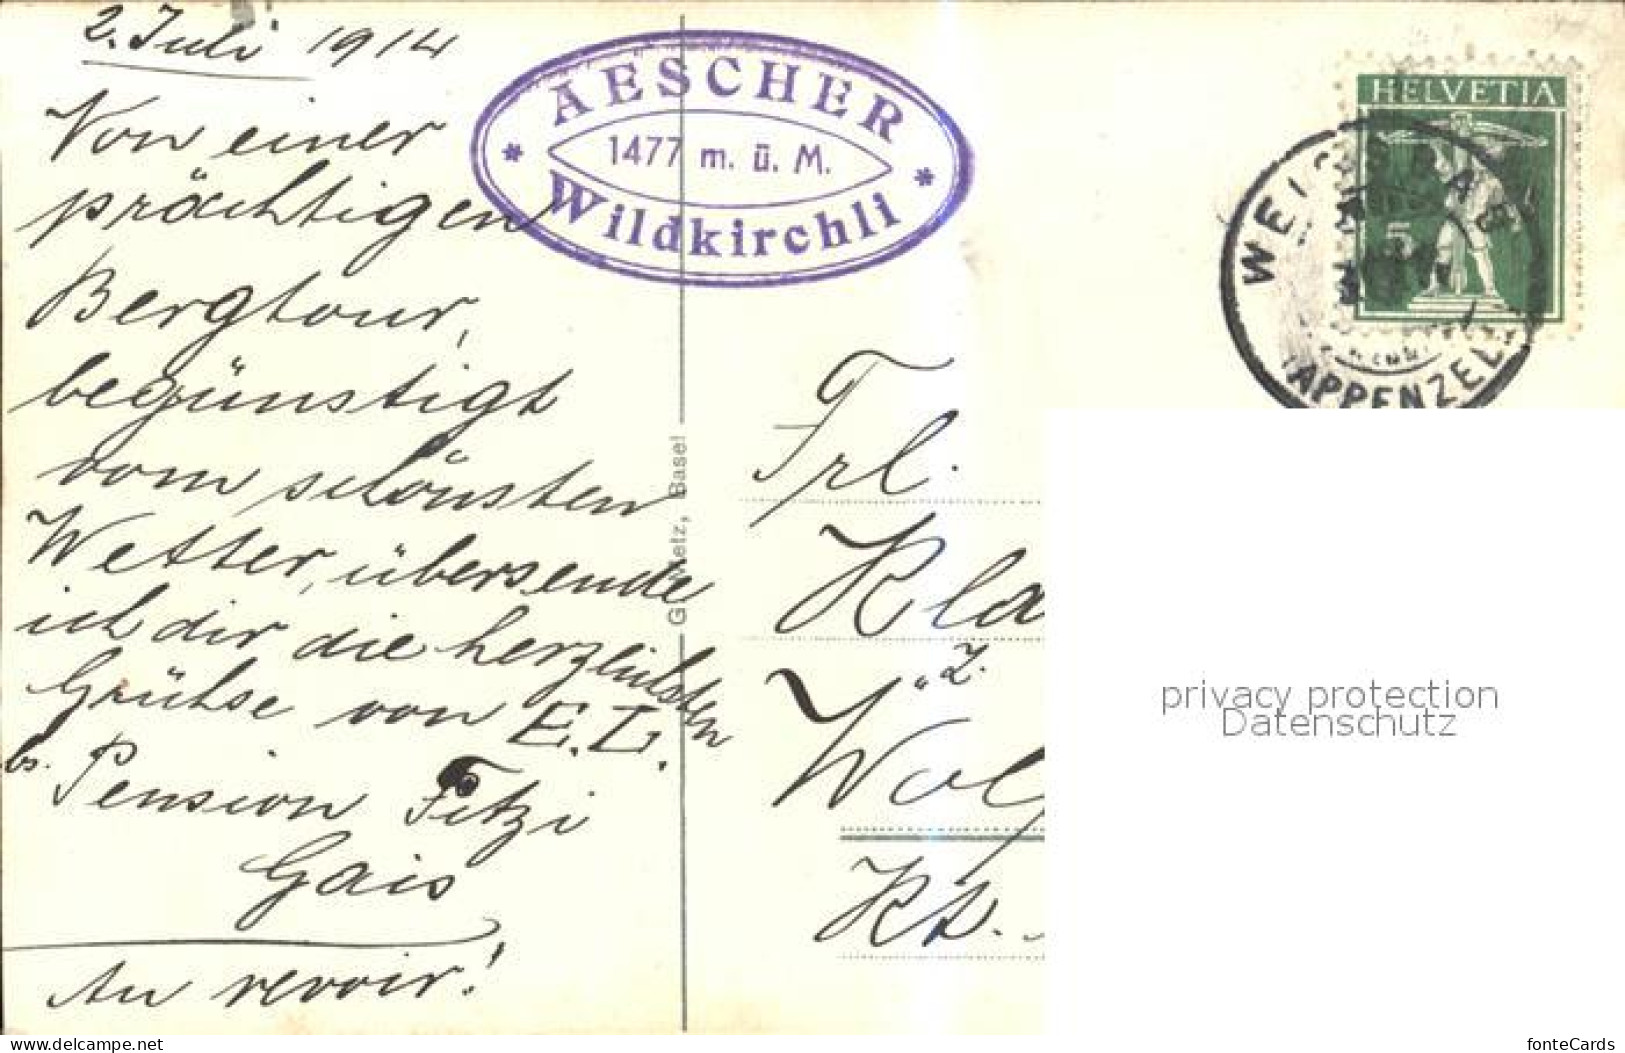 2. Juli 1914
Von einer
prächtigen
Bergtour,
begünstigt
vom schönsten
Wetter, übersende
ich dir die herzlichsten
Grühse von E. L.
bs. Pension Fitzi
Gais
Au revoir!
AËSCHER
1477 m. ü. M.
Wildkirchli
G. Metz, Basel
HELVETIA
5
WEISSBAD
(APPENZELL)
Frl.
Kla
" z.
Wol
Kt.
privacy protection
Datenschutz
www.delcampe.net
fonteCards